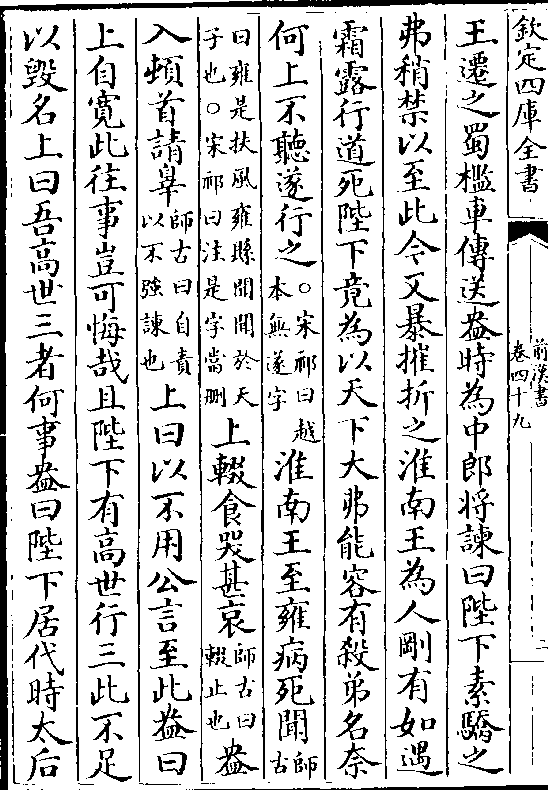 欽定四庫全書
前漢書
卷四十九
二
王遷之蜀檻車傳送盎時為中郎將諫曰陛下素驕之
弗稍禁以至此今又暴摧折之淮南王為人剛有如遇
霜露行道死陛下竟為以天下大弗能容有殺弟名奈
何上不聽遂行之○宋祁曰越本無遂字淮南王至雍病死聞師古
曰雍是扶風雍縣聞聞於天子也○宋祁曰注是字當刪上輟食哭甚哀師古曰輟止也盎
入頓首請辠師古曰自責以不強諫也上曰以不用公言至此盎曰
上自寛此往事豈可悔哉且陛下有高世行三此不足
以毀名上曰吾高世三者何事盎曰陛下居代時太后